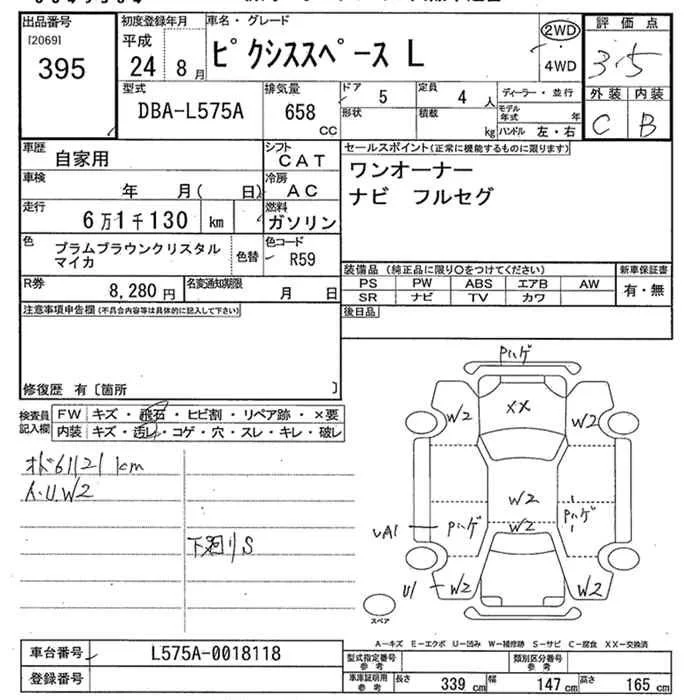 出品番号 初度登録年月 車名・グレード 評価点
[2069] 平成 ピクシススペース L 2WD
395 24 8月 4WD 3.5
型式 排気量 ドア 定員 ディーラー・並行 外装 内装
DBA-L575A 658 CC 5 4人 モデル年式 年 C B
形状 積載 kg ハンドル 左・右
車歴 自家用 シフト CAT セールスポイント(正常に機能するものに限ります)
車検 年 月( 日) 冷房 AC ワンオーナー
走行 6万1千130 km 燃料 ガソリン ナビ フルセグ
色 プラムブラウンクリスタル 色替 色コード R59
マイカ
装備品 (純正品に限り○をつけてください) 新車保証書
PS PW ABS エアB AW 有・無
SR ナビ TV カワ
R券 8,280円 名変通知期限 月 日
後日品
注意事項申告欄(不具合内容等は具体的に記入して下さい)
修復歴 有〔箇所 〕
検査員 FW キズ・飛石・ヒビ割・リペア跡・×要
記入欄 内装 キズ・汚レ・コゲ・穴・スレ・キレ・破レ
オド61121km
A・U.W2
下廻りS
Pハゲ
W2 XX W2
W2
W2
UA1 Pハゲ Pハゲ
U1 W2 W2
スペア
A−キズ E−エクボ U−凹み W−補修跡 S−サビ C−腐食 XX−交換済
車台番号 L575A-0018118 型式指定番号 参考 類別区分番号 参考
登録番号 車庫証明用 参考 長さ 339cm 幅 147cm 高さ 165cm